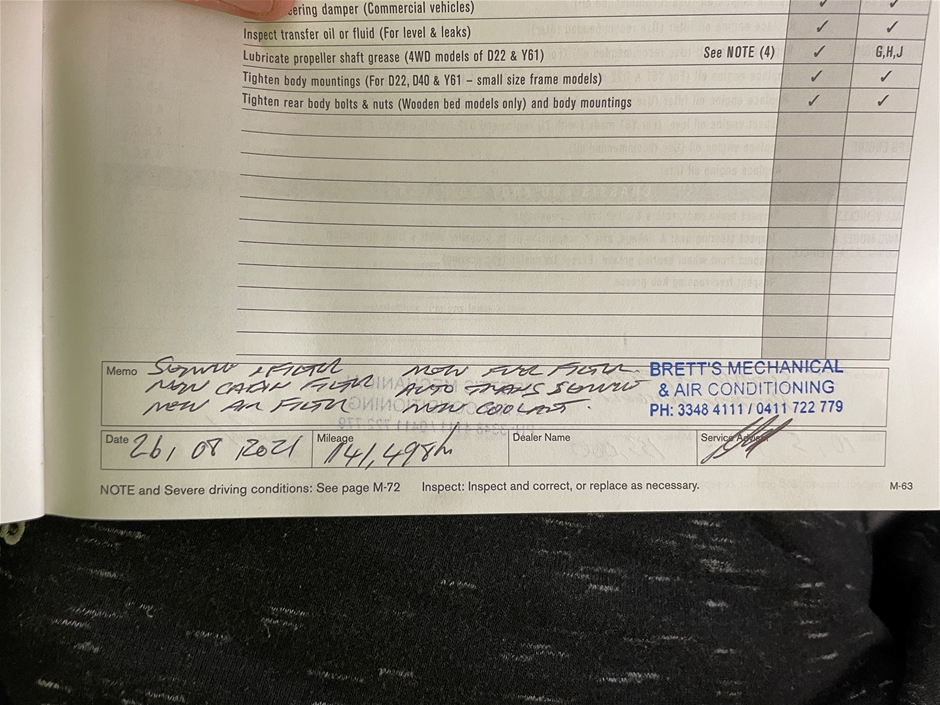 ering damper (Commercial vehicles) ✓ ✓
Inspect transfer oil or fluid (For level & leaks) ✓ ✓
Lubricate propeller shaft grease (4WD models of D22 & Y61) See NOTE (4) ✓ G,H,J
Tighten body mountings (For D22, D40 & Y61 – small size frame models) ✓ ✓
Tighten rear body bolts & nuts (Wooden bed models only) and body mountings ✓ ✓
Memo SERVICE & FILTER NEW FUEL FILTER.
NEW CABIN FILTER AUTO TRANS SERVICE
NEW AIR FILTER NEW COOLANT.
BRETT'S MECHANICAL
& AIR CONDITIONING
PH: 3348 4111 / 0411 722 779
Date 26, 08, 2021 Mileage 141,498 Dealer Name Service Advisor
NOTE and Severe driving conditions: See page M-72 Inspect: Inspect and correct, or replace as necessary. M-63